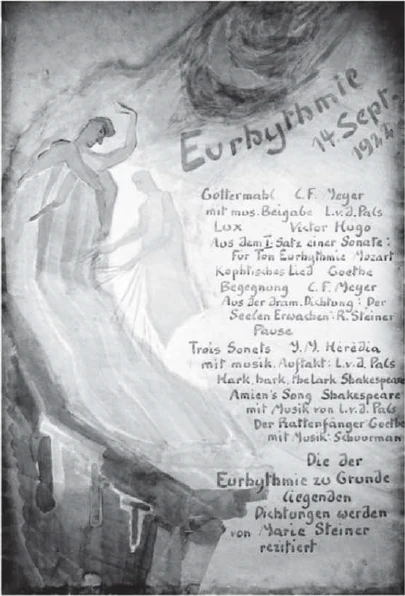 Eurhythmie
14. Sept.
1924
Göttermahl C.F. Meyer
mit mus. Beigabe L.v.d. Pals
Lux Victor Hugo
Aus dem I. Satz einer Sonate:
für Ton Eurhythmie Mozart
Kophtisches Lied Goethe
Begegnung C.F. Meyer
Aus der dram. Dichtung: Der
Seelen Erwachen: R. Steiner
Pause
Trois Sonets J.M. Hérèdia
mit musik. Auftakt: L.v.d. Pals
Hark, hark, the Lark Shakespeare
Amien's Song Shakespeare
mit Musik von L.v.d. Pals
Der Rattenfänger Goethe
mit Musik: Schuurman
Die der
Eurhythmie zu Grunde
liegenden
Dichtungen werden
von Marie Steiner
rezitiert